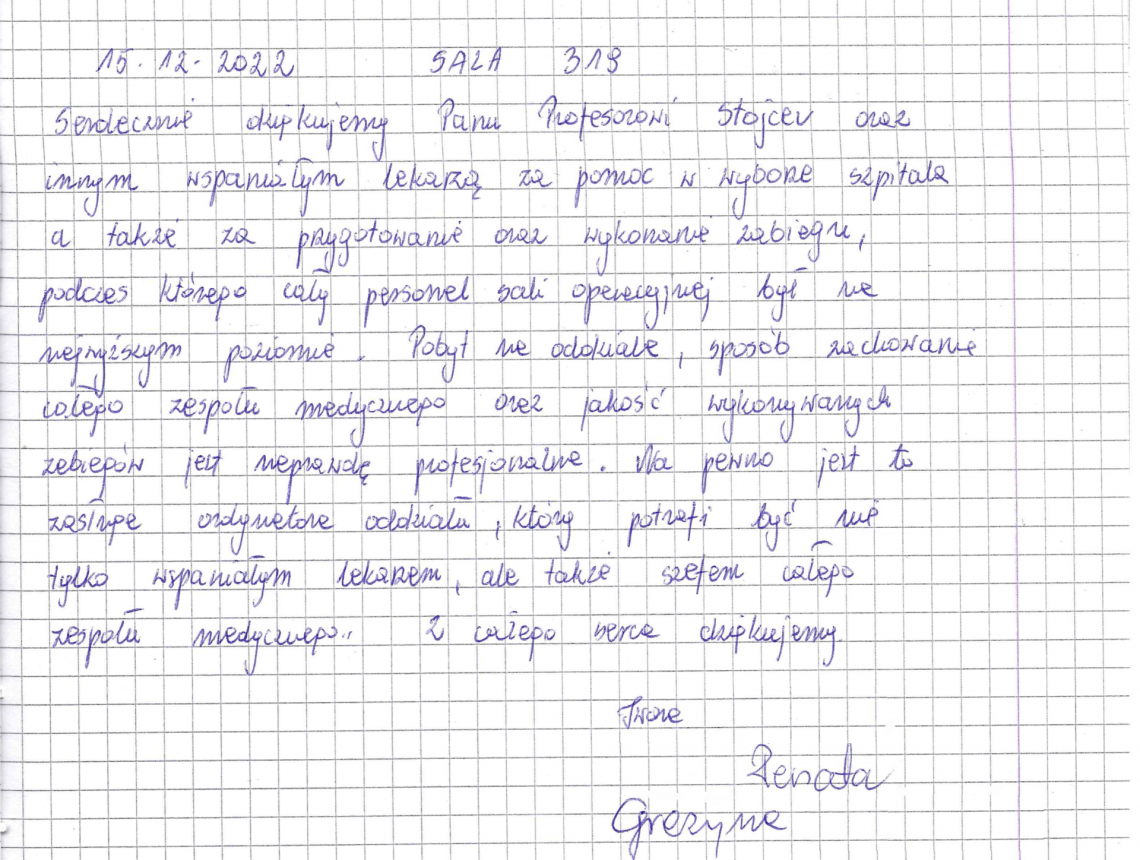 15.12.2022 SALA 319
Serdecznie dziękujemy Panu Profesorowi Stojcev oraz
innym wspaniałym lekarzą za pomoc w wyborze szpitala
a także za przygotowanie oraz wykonanie zabiegu,
podczes którego cały personel sali operacyjnej był na
najwyższym poziomie. Pobyt na oddziale, sposób zachowanie
całego zespołu medycznego oraz jakość wykonywanych
zabiegów jest naprawdę profesjonalne. Na pewno jest to
zasługa ordynatora oddziału, który potrafi być nie
tylko wspaniałym lekarzem, ale także szefem całego
zespołu medycznego.. Z całego serca dziękujemy.
Iwona
Renata
Grażyna